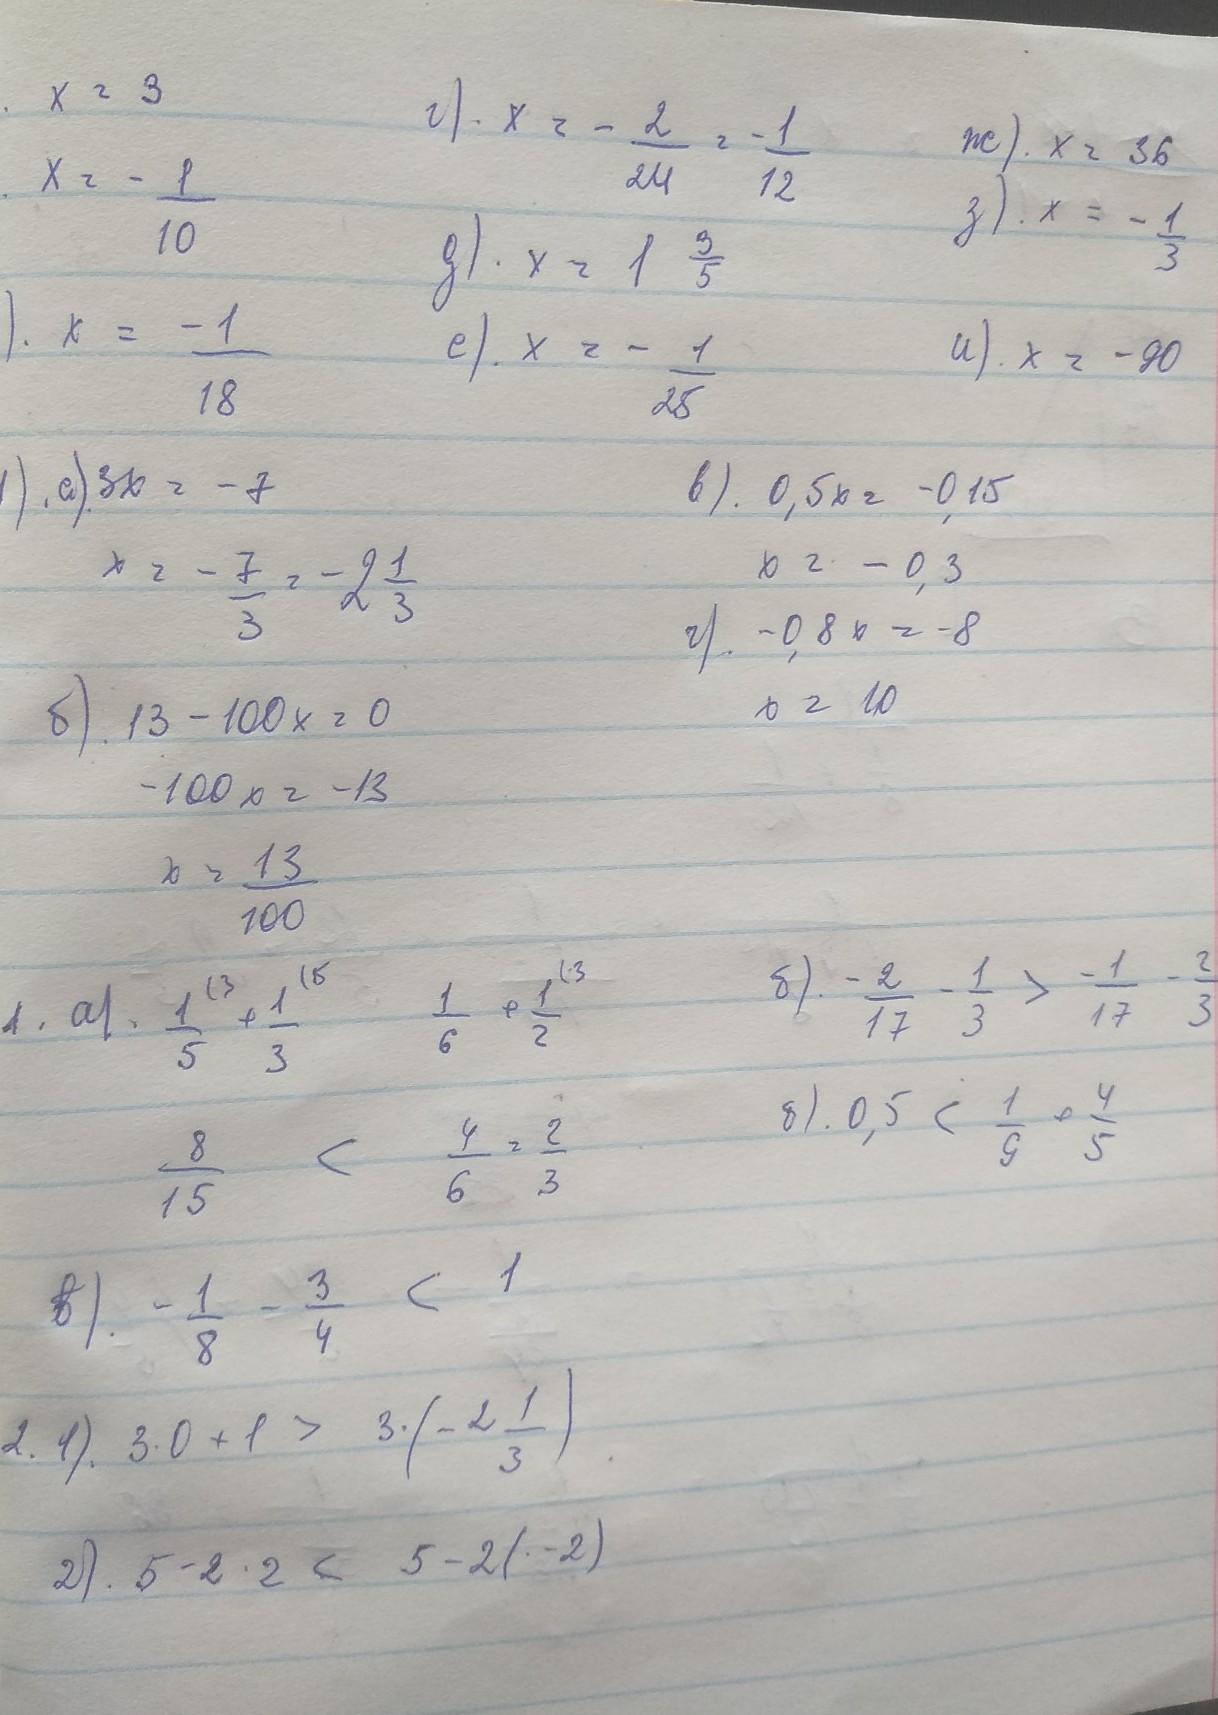 . x = 3
. x = - 1/10
). x = -1/18
г). x = - 2/24 = -1/12
д). x = 1 3/5
е). x = - 1/25
ж). x = 36
з). x = - 1/3
и). x = -90
1). а). 3x = -7
x = - 7/3 = -2 1/3
б). 13 - 100x = 0
-100x = -13
x = 13/100
в). 0,5x = -0,15
x = -0,3
г). -0,8x = -8
x = 10
1. а). 1/5 (3 + 1/3 (5 1/6 + 1/2 (3
8/15 < 4/6 = 2/3
б). - 2/17 - 1/3 > -1/17 - 2/3
б). 0,5 < 1/9 + 4/5
в). - 1/8 - 3/4 < 1
2. 1). 3·0 + 1 > 3·(-2 1/3)
2). 5 - 2·2 < 5 - 2(·-2)